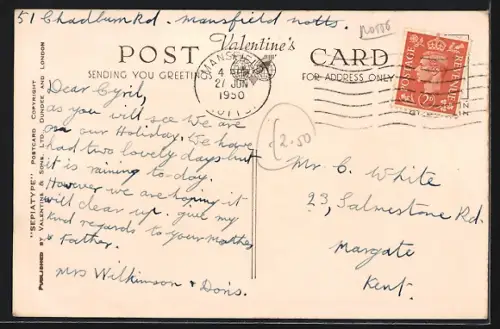 51 Chadburn Rd. Mansfield Notts.
POST Valentine's CARD
SENDING YOU GREETIN
FOR ADDRESS ONLY
MANSFIELD
4
27 JUN
1950
NOTTS
POSTAGE REVENUE
2D
2.50
Dear Cyril,
as you will see We are
on our Holiday. We have
had two lovely days but
it is raining to-day.
However we are hoping it
will clear up. give my
kind regards to your Mother
& Father.
Mrs Wilkinson & Doris.
Mr C. White
23, Salmestone Rd.
Margate
Kent.
"SEPIATYPE" POSTCARD COPYRIGHT
PUBLISHED BY VALENTINE & SONS, LTD., DUNDEE AND LONDON